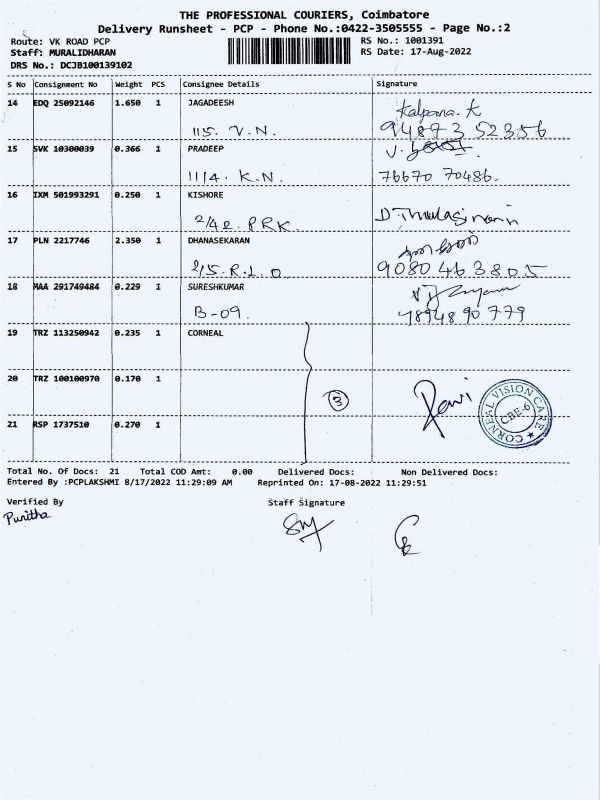 THE PROFESSIONAL COURIERS, Coimbatore
Delivery Runsheet - PCP - Phone No.:0422-3505555 - Page No.:2
Route: VK ROAD PCP
Staff: MURALIDHARAN
DRS No.: DCJB100139102
RS No.: 1001391
RS Date: 17-Aug-2022
S No Consignment No Weight PCS Consignee Details Signature
14 EDQ 25092146 1.650 1 JAGADEESH Kalpana. K
115. V.N. 94873 52356
15 SVK 10300039 0.366 1 PRADEEP
11/4. K.N. 76670 70486.
16 IXM 501993291 0.250 1 KISHORE
2/42. PRK.
17 PLN 2217746 2.350 1 DHANASEKARAN
2/5. R.L.O 9080 463805
18 MAA 291749484 0.229 1 SURESHKUMAR
B-09. 9894890779
19 TRZ 113250942 0.235 1 CORNEAL
20 TRZ 100100970 0.170 1
3
Ravi
CORNEAL VISION CARE
CBE-6
21 RSP 1737510 0.270 1
Total No. Of Docs: 21 Total COD Amt: 0.00 Delivered Docs: Non Delivered Docs:
Entered By :PCPLAKSHMI 8/17/2022 11:29:09 AM Reprinted On: 17-08-2022 11:29:51
Verified By Staff Signature
Punitha